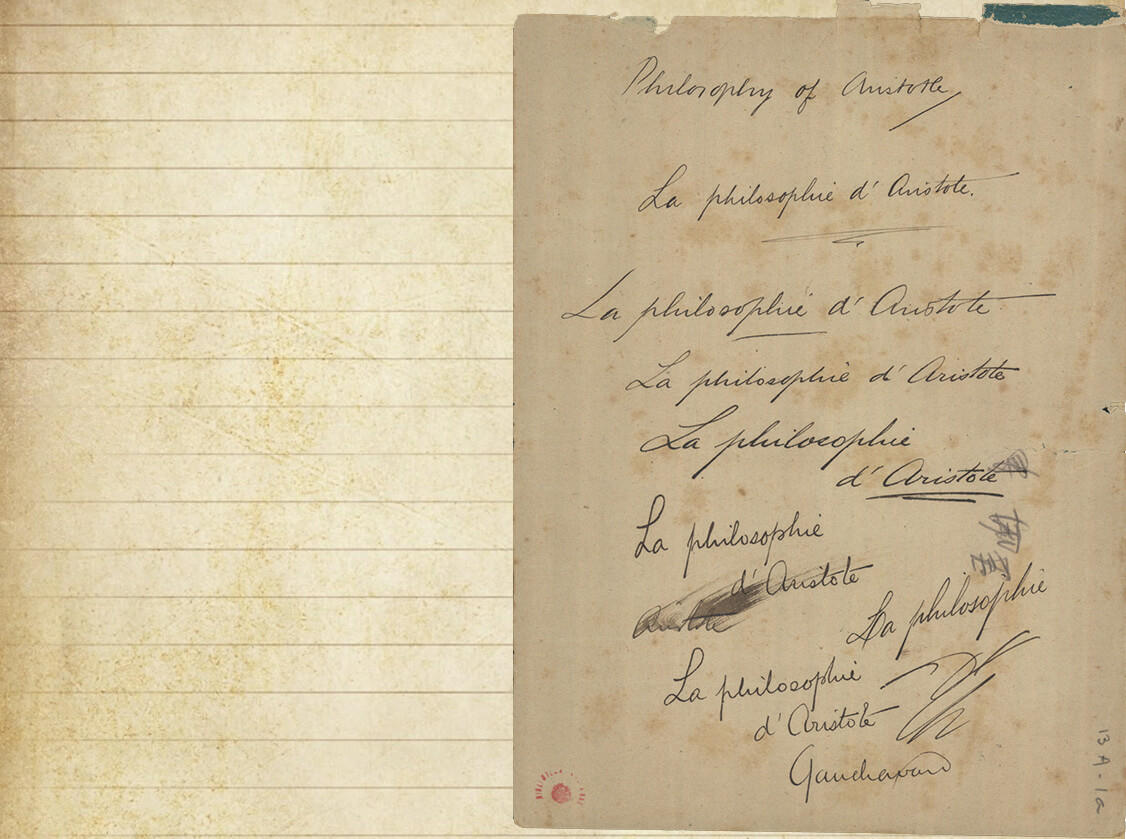 Philosophy of Aristotle
La philosophie d'Aristote.
La philosophie d'Aristote
La philosophie d'Aristote
La philosophie
d'Aristote
La philosophie
d'Aristote
Aristote
La philosophie
La philosophie
d'Aristote
13 A-1a